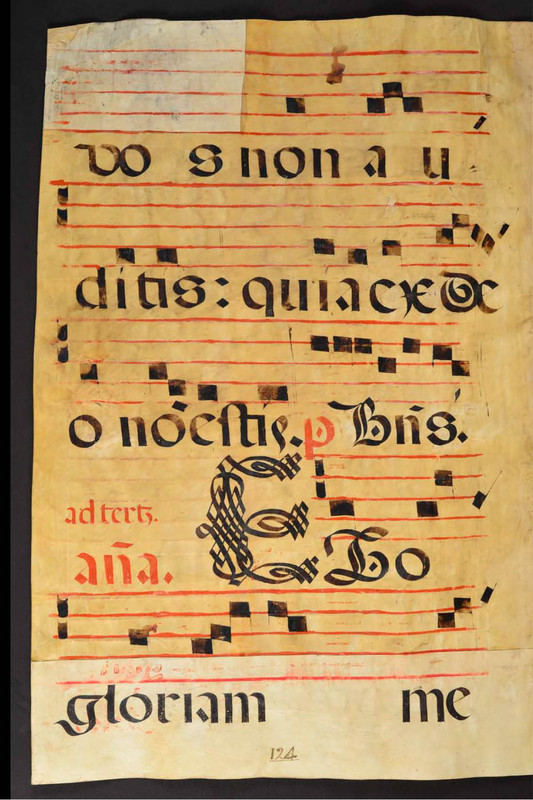 vo s non a u
ditis: quia ex de
o nō estis. p Bn̄s.
ad tertȝ.
an̄a. E Go
gloriam me
124